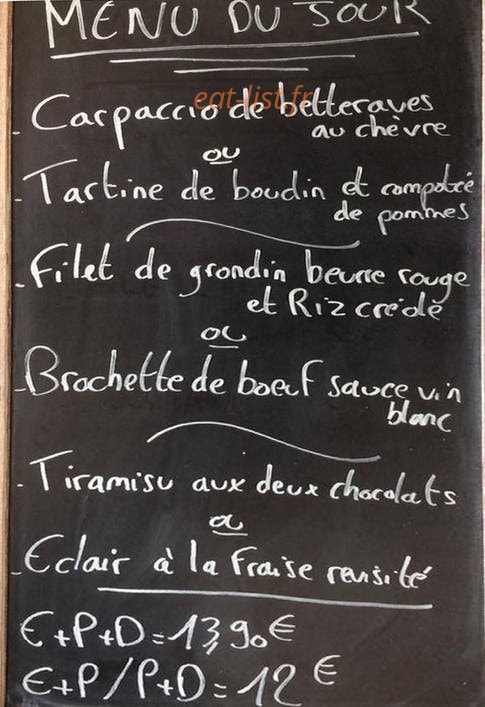 MENU DU JOUR
eat-list.fr
- Carpaccio de betteraves
au chèvre
ou
- Tartine de boudin et compotée
de pommes
- Filet de grondin beurre rouge
et Riz créole
ou
- Brochette de boeuf sauce vin
blanc
- Tiramisu aux deux chocolats
ou
- Eclair à la fraise revisité
E+P+D=13,90€
E+P/P+D=12€